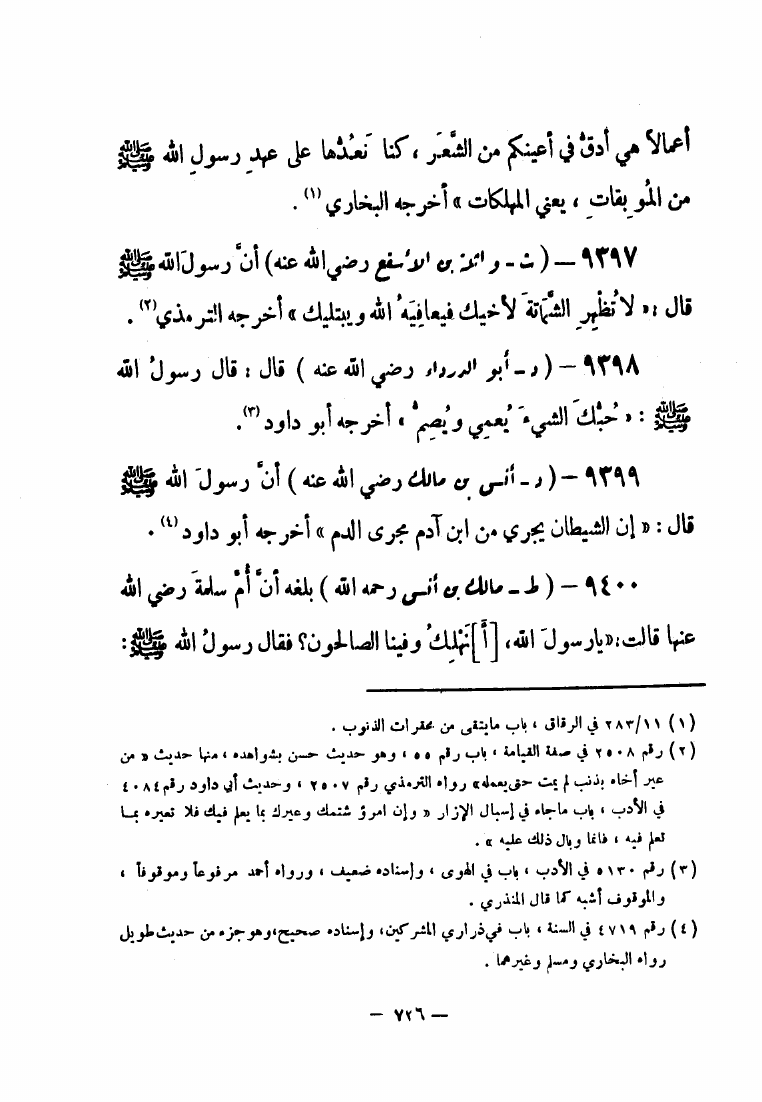 أعمالاً هي أدقُّ في أعينكم من الشَّعَر ، كنا نَعُدُّها على عهدِ رسولِ الله ﷺ
من المُوبِقاتِ ، يعني المهلكات » أخرجه البخاري (١) .
٩٣٩٧ – ( ت - واثلة بن الأسقع رضي الله عنه) أنَّ رسولَ الله ﷺ
قال : « لا تُظْهِرِ الشَّمَاتةَ لأخيك فيعافِيَهُ الله ويبتليك » أخرجه الترمذي (٢) .
٩٣٩٨ – ( د - أبو الدرداء رضي الله عنه ) قال : قال رسولُ الله
ﷺ : « حُبُّكَ الشيءَ يُعمِي ويُصِمُّ » أخرجه أبو داود (٣).
٩٣٩٩ – ( د - أنس بن مالك رضي الله عنه ) أنَّ رسولَ الله ﷺ
قال : « إن الشيطان يجري من ابن آدم مجرى الدم » أخرجه أبو داود (٤) .
٩٤٠٠ – ( ط - مالك بن أنس رحمه الله ) بلغه أنَّ أُمَّ سلمةَ رضي الله
عنها قالت : « يا رسولَ الله، [أَ]نَهْلِكُ وفينا الصالحون؟ فقال رسولُ الله ﷺ :
(١) ٢٨٣/١١ في الرقاق ، باب مايتقى من محقرات الذنوب .
(٢) رقم ٢٥٠٨ في صفة القيامة ، باب رقم ٥٥ ، وهو حديث حسن بشواهده ، منها حديث « من
عير أخاه بذنب لم يمت حتى يعمله» رواه الترمذي رقم ٢٥٠٧ ، وحديث أبي داود رقم ٤٠٨٤
في الأدب ، باب ماجاه في إسبال الإزار « وإن امرؤ شتمك وعيرك بما يعلم فيك فلا تعيره بما
تعلم فيه ، فانما وبال ذلك عليه » .
(٣) رقم ٥١٣٠ في الأدب ، باب في الهوى ، وإسناده ضعيف ، ورواه أحمد مرفوعاً وموقوفاً ،
والموقوف أشبه كما قال المنذري .
(٤) رقم ٤٧١٩ في السنة ، باب في ذراري المشركين، وإسناده صحيح، وهو جزء من حديث طويل
رواه البخاري ومسلم وغيرهما .
– ٧٢٦ –